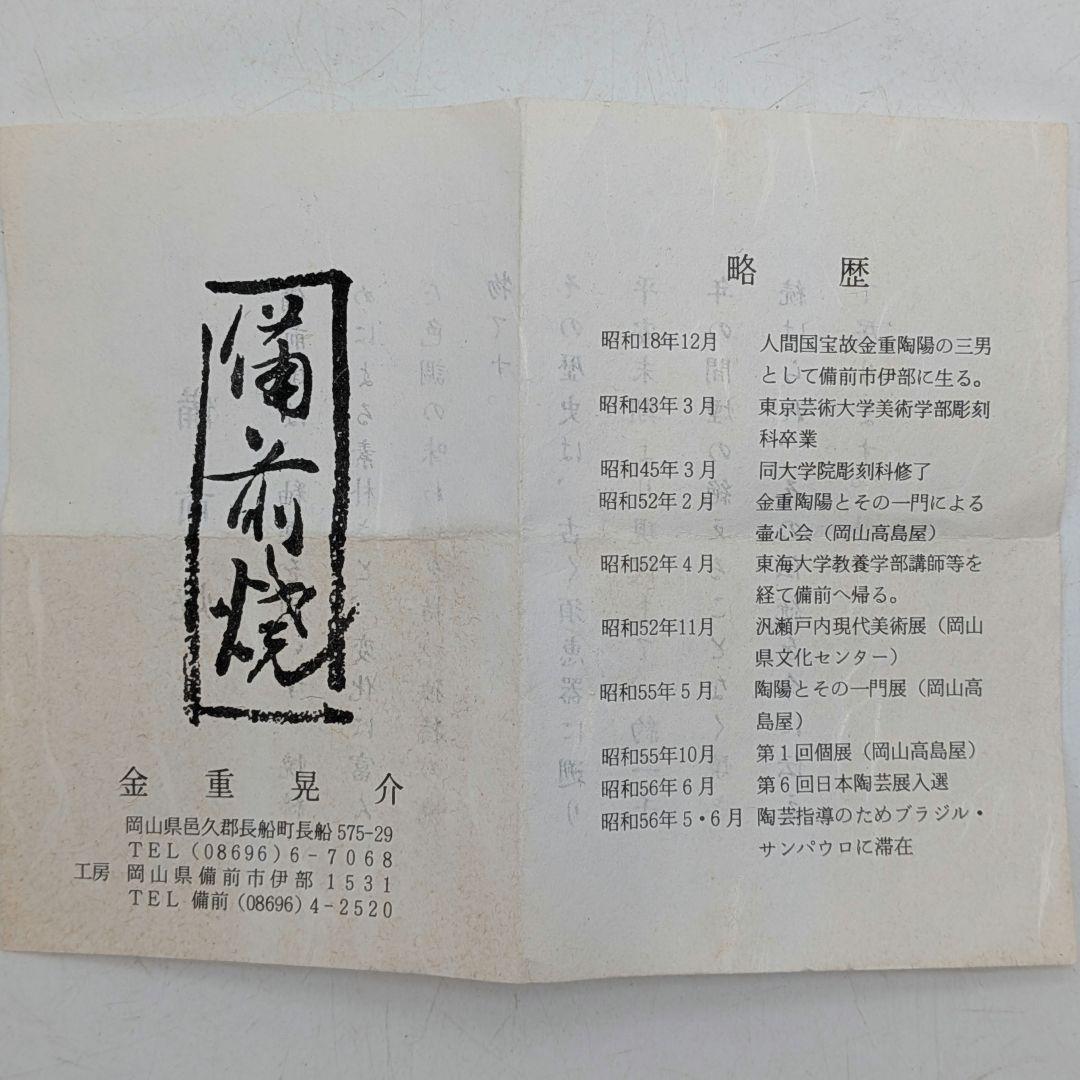 備前焼
金重晃介
岡山県邑久郡長船町長船 575-29
TEL (08696) 6-7068
工房 岡山県備前市伊部 1531
TEL 備前 (08696) 4-2520
略歴
昭和18年12月 人間国宝故金重陶陽の三男
として備前市伊部に生る。
昭和43年3月 東京芸術大学美術学部彫刻
科卒業
昭和45年3月 同大学院彫刻科修了
昭和52年2月 金重陶陽とその一門による
壷心会(岡山高島屋)
昭和52年4月 東海大学教養学部講師等を
経て備前へ帰る。
昭和52年11月 汎瀬戸内現代美術展(岡山
県文化センター)
昭和55年5月 陶陽とその一門展(岡山高
島屋)
昭和55年10月 第1回個展(岡山高島屋)
昭和56年6月 第6回日本陶芸展入選
昭和56年5・6月 陶芸指導のためブラジル・
サンパウロに滞在